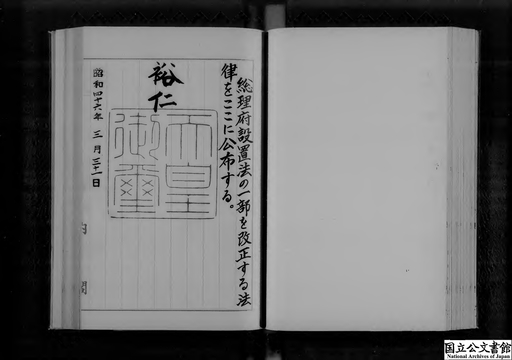 総理府設置法の一部を改正する法
律をここに公布する。
裕仁
天皇
御璽
昭和四十六年 三月三十一日
内 閣
国立公文書館
National Archives of Japan